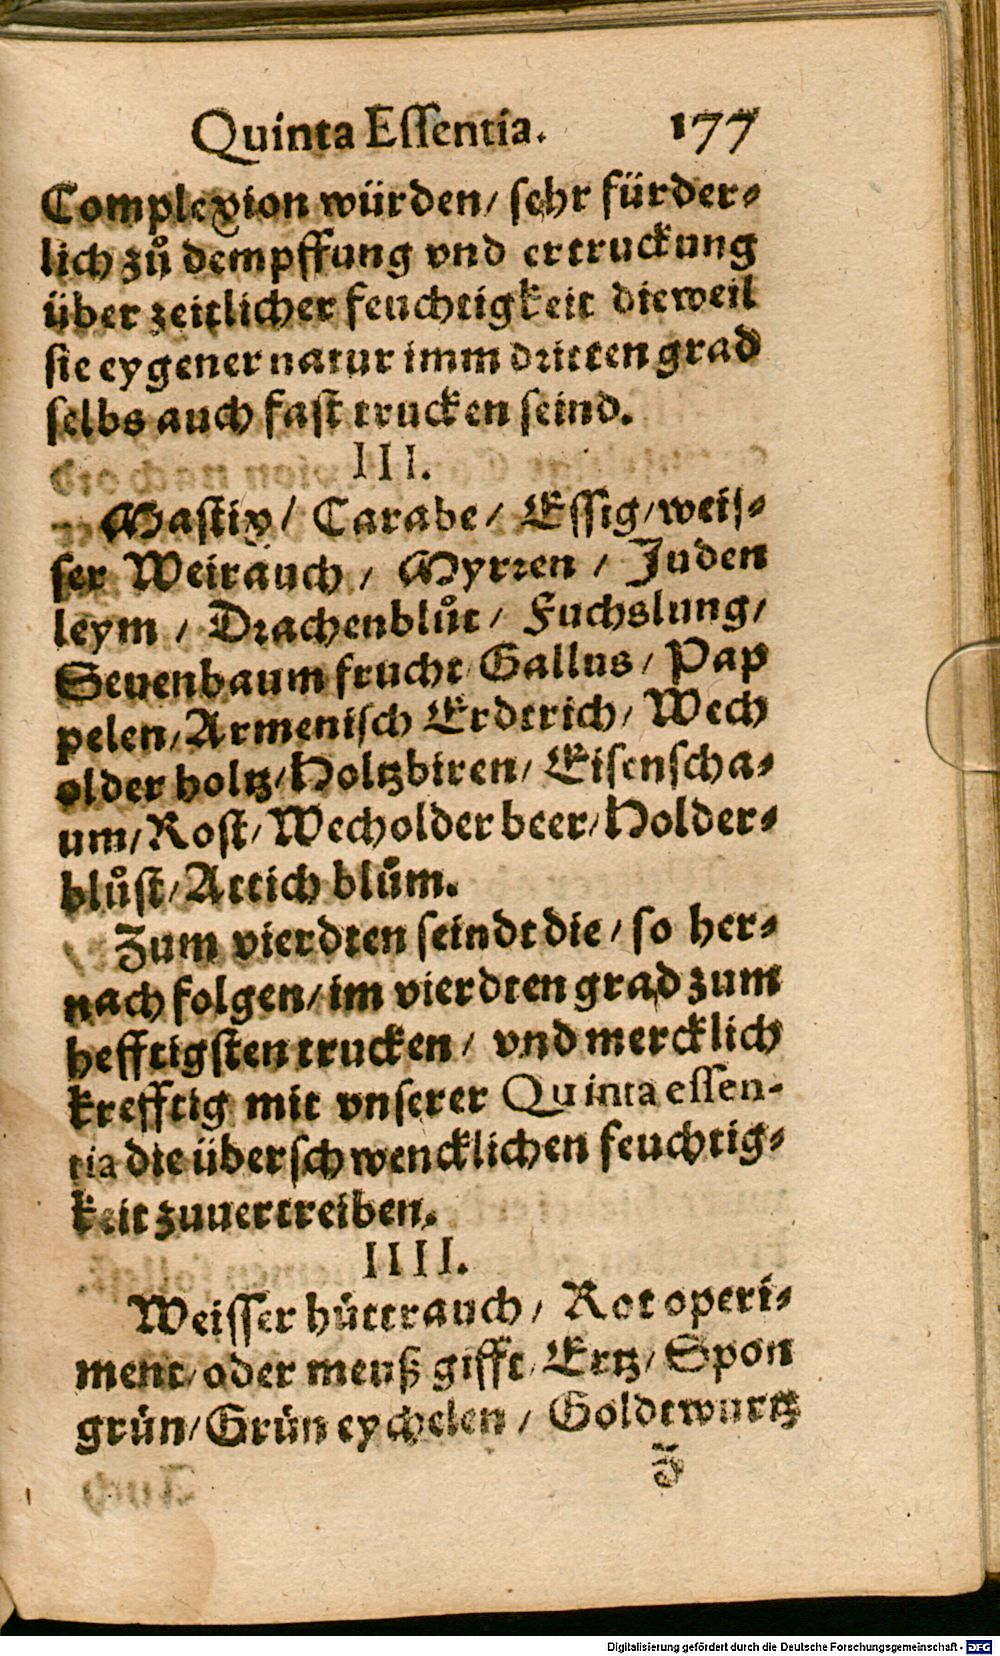 Quinta Essentia. 177
Complexion würden/ sehr fürder-
lich zuͦ dempffung vnd ertruckung
über zeitlicher feuchtigkeit dieweil
sie eygener natur imm dritten grad
selbs auch fast trucken seind.
III.
Mastix/ Carabe/ Essig/weis-
ser Weirauch/ Myrren/ Juden
leym/ Drachenbluͦt/ Fuchslung/
Seuenbaum frucht Gallus/ Pap
pelen/Armenisch Erdtrich/ Wech
older holtz/Holtzbiren/ Eisenscha-
um/Rost/Wecholder beer/Holder-
bluͦst/Attich bluͦm.
Zum vierdten seindt die/so her-
nach folgen/im vierdten grad zum
hefftigsten trucken/ vnd mercklich
krefftig mit vnserer Quinta essen-
tia die überschwencklichen feuchtig-
keit zuuertreiben.
IIII.
Weisser hüttrauch/ Rot operi-
ment/oder meuß gifft/Ertz/Spon
grün/Grün eychelen/ Goldtwurtz
Z
Digitalisierung gefördert durch die Deutsche Forschungsgemeinschaft - DFG